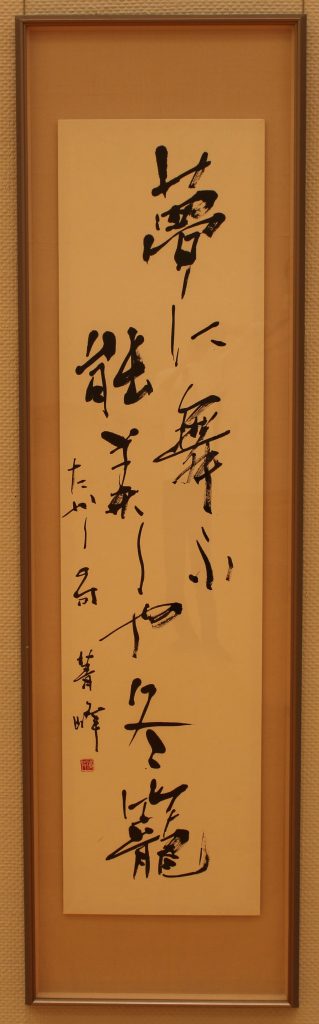 夢に舞ふ
能美しや冬籠
たかし句
菁峰